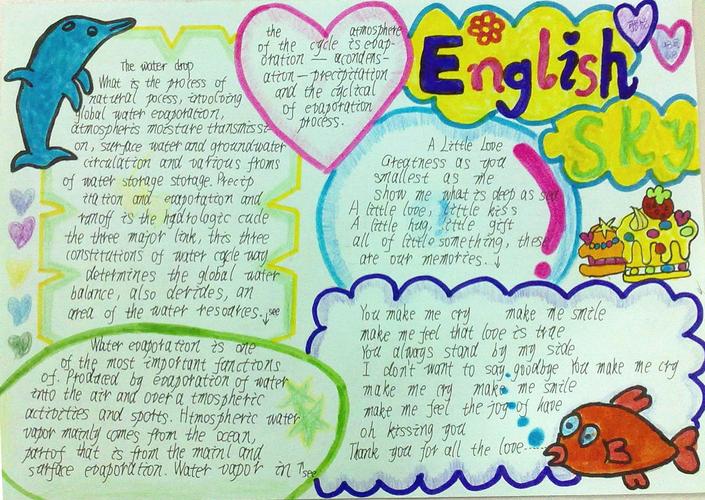 English
Sky
The water drop
What is the process of
natural pocess, involving
global water evaporation,
atmospheric moisture transmissi-
on, surface water and groundwater
circulation and various froms
of water storage storage. Precip
itation and evaporation and
runoff is the hydrologic cucle
the three major link, this three
constitutions of water cycle way
determines the global water
balance, also derides, an
area of the water resources.↓see
Water evaporation is one
of the most important fanctions
of. Produced by evaporation of water
into the air and over a tmospheric
activities and sports. Htmospheric water
vapor mainly comes from the ocean,
partof that is from the mainl and
surface evaporation. Water vapor in ↑see
the atmosphere
of the cycle is evap-
oration — acondens-
ation — precipitation
and the cyclical
of evaporation
process.
A Little Love
Greatness as you
smallest as me
show me what is deep as sea
A little love, little kiss
A little hug, little gift
all of little something, these
are our memories. ↓
You make me cry make me smile
make me feel that love is true
You always stand by my side
I don't want to say goodbye You make me cry
make me cry make me smile
make me feel the joy of have
oh kissing you
Thank you for all the love......